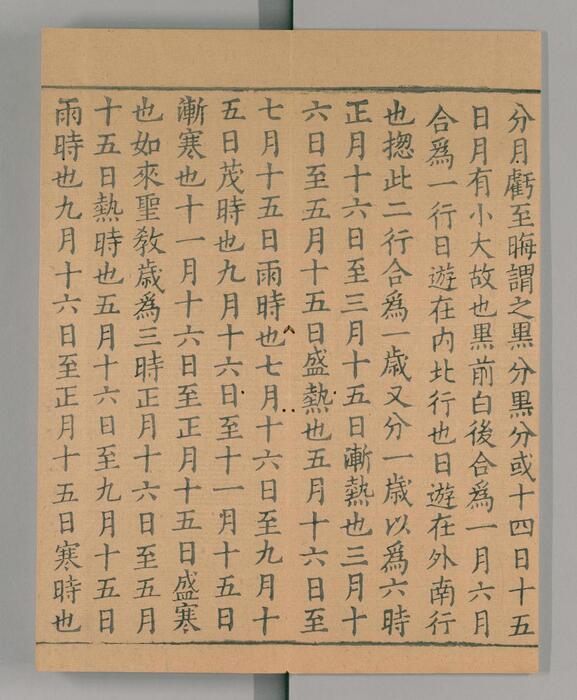 分月虧至晦謂之黒分黒分或十四日十五
日月有小大故也黒前白後合爲一月六月
合爲一行日遊在内北行也日遊在外南行
也揔此二行合爲一歳又分一歳以爲六時
正月十六日至三月十五日漸熱也三月十
六日至五月十五日盛熱也五月十六日至
七月十五日雨時也七月十六日至九月十
五日茂時也九月十六日至十一月十五日
漸寒也十一月十六日至正月十五日盛寒
也如來聖教歳爲三時正月十六日至五月
十五日熱時也五月十六日至九月十五日
雨時也九月十六日至正月十五日寒時也